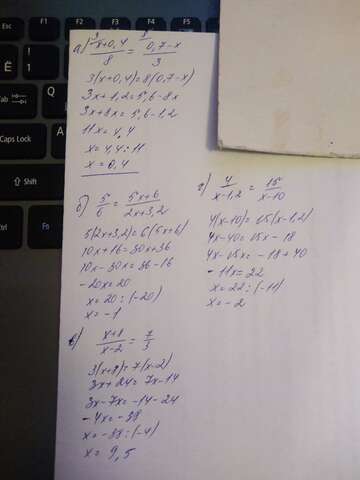 а) x+0,4 / 8 = 0,7-x / 3
3(x+0,4)=8(0,7-x)
3x+1,2=5,6-8x
3x+8x=5,6-1,2
11x=4,4
x=4,4:11
x=0,4
б) 5/6 = 5x+6 / 2x+3,2
5(2x+3,2)=6(5x+6)
10x+16=30x+36
10x-30x=36-16
-20x=20
x=20:(-20)
x=-1
в) x+8 / x-2 = 7/3
3(x+8)=7(x-2)
3x+24=7x-14
3x-7x=-14-24
-4x=-38
x=-38:(-4)
x=9,5
г) 4 / x-1,2 = 15 / x-10
4(x-10)=15(x-1,2)
4x-40=15x-18
4x-15x=-18+40
-11x=22
x=22:(-11)
x=-2
Esc
Tab
Caps Lock
Shift
Ctrl